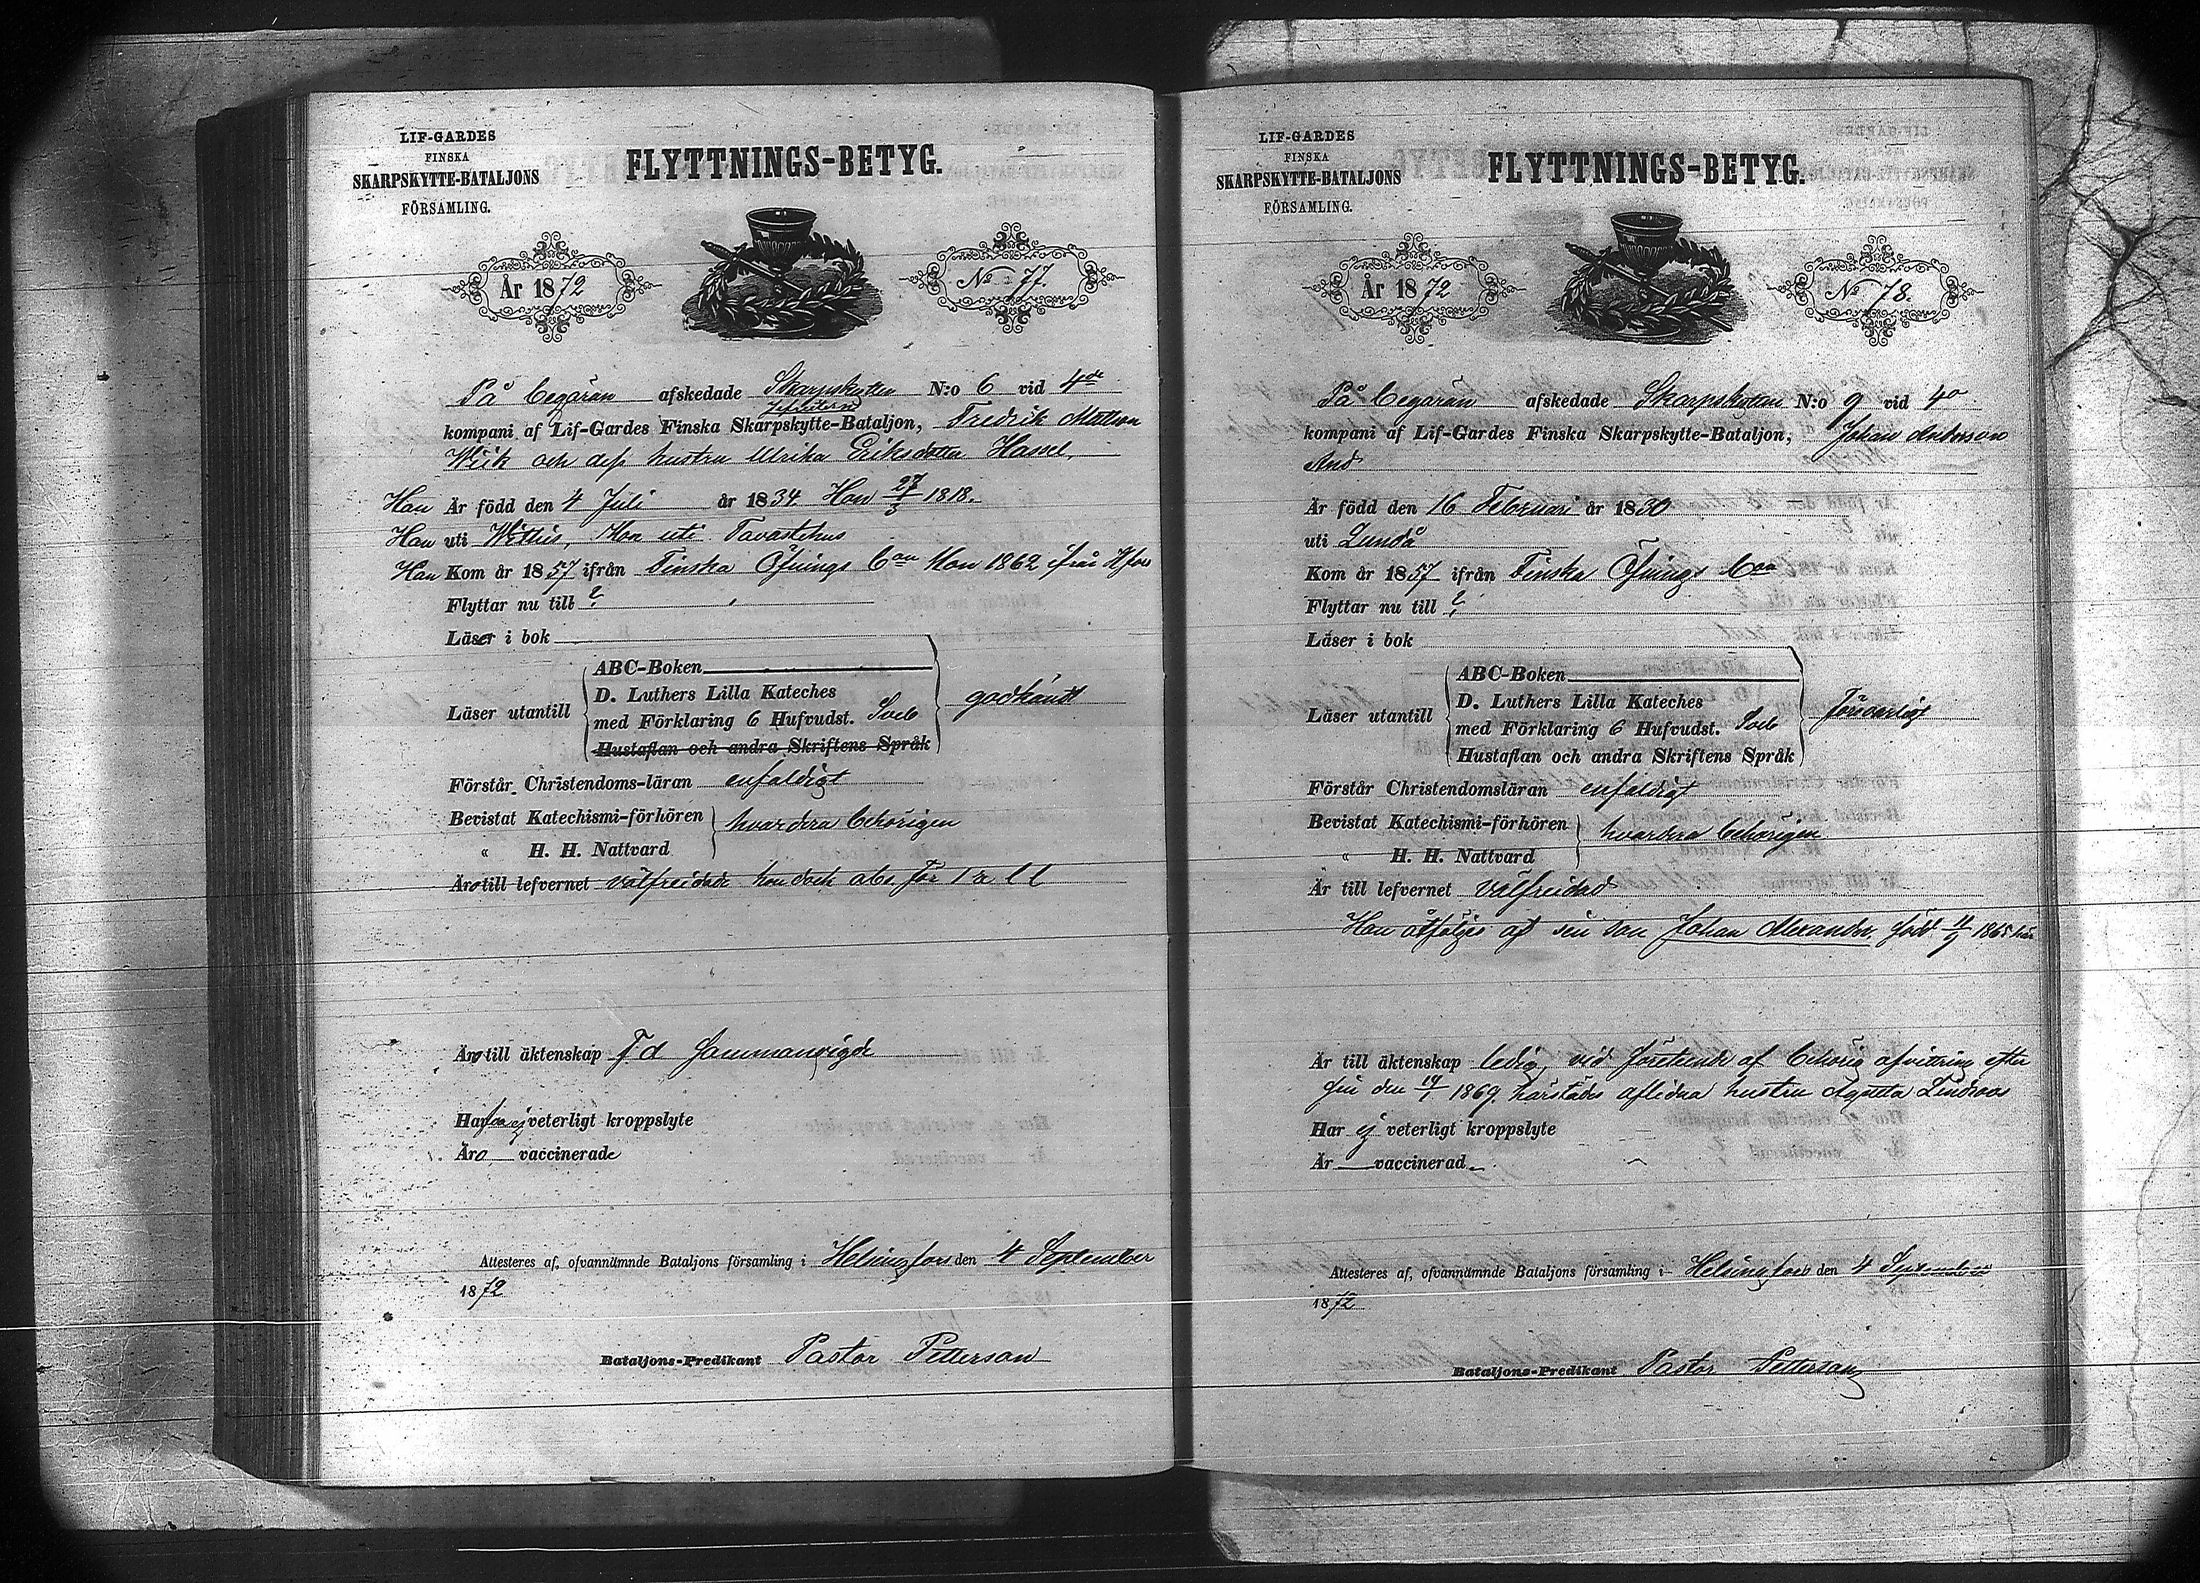 LIF-GARDES
FINSKA
SKARPSKYTTE-BATALJONS
FÖRSAMLING.
FLYTTNINGS-BETYG.
År 1872
No 77.
På begäran afskedade Skarpskytten N:o 6 vid 4de
kompani af Lif-Gardes Finska Skarpskytte-Bataljon, Fredrik Mattson
Wiik och dess hustru Ulrika Eriksdotter Hassel,
Han Är född den 4 Juli år 1834 Hon 27/3 1818.
Han uti Wittis, Hon uti Tavastehus
Han Kom år 1857 ifrån Finska Öfnings Con Hon 1862 från Hfors
Flyttar nu till ?
Läser i bok
ABC-Boken
D. Luthers Lilla Kateches
Läser utantill med Förklaring 6 Hufvudst. Sveb godkändt
Hustaflan och andra Skriftens Språk
Förstår Christendoms-läran enfaldigt
Bevistat Katechismi-förhören hvardera behörigen
" H. H. Nattvard
Äro till lefvernet välfreidade hon dock abs. för 1 a l l
Äro till äktenskap F d Sammanvigde
Hafva ej veterligt kroppslyte
Äro vaccinerade
Attesteres af, ofvannämnde Bataljons församling i Helsingfors den 4 September
1872
Bataljons-Predikant Pastor Petterson
LIF-GARDES
FINSKA
SKARPSKYTTE-BATALJONS
FÖRSAMLING.
FLYTTNINGS-BETYG.
År 1872
No 78.
På begäran afskedade Skarpskytten N:o 9 vid 4de
kompani af Lif-Gardes Finska Skarpskytte-Bataljon, Johan Anderson
And
Är född den 16 Februari år 1830
uti Lundå
Kom år 1857 ifrån Finska Öfnings Con
Flyttar nu till ?
Läser i bok
ABC-Boken
D. Luthers Lilla Kateches
Läser utantill med Förklaring 6 Hufvudst. Sveb försvarligt
Hustaflan och andra Skriftens Språk
Förstår Christendomsläran enfaldigt
Bevistat Katechismi-förhören hvardera behörigen
" H. H. Nattvard
Är till lefvernet välfreidad
Han åtföljes af sin son Johan Alexander, född 11/9 1865 här
Är till äktenskap ledig, vid företeende af behörig afvittring efter
sin den 14/1 1869 härstädes aflidna hustru Agatta Lindroos
Har ej veterligt kroppslyte
Är vaccinerad
Attesteres af, ofvannämnde Bataljons församling i Helsingfors den 4 September
1872
Bataljons-Predikant Pastor Petterson